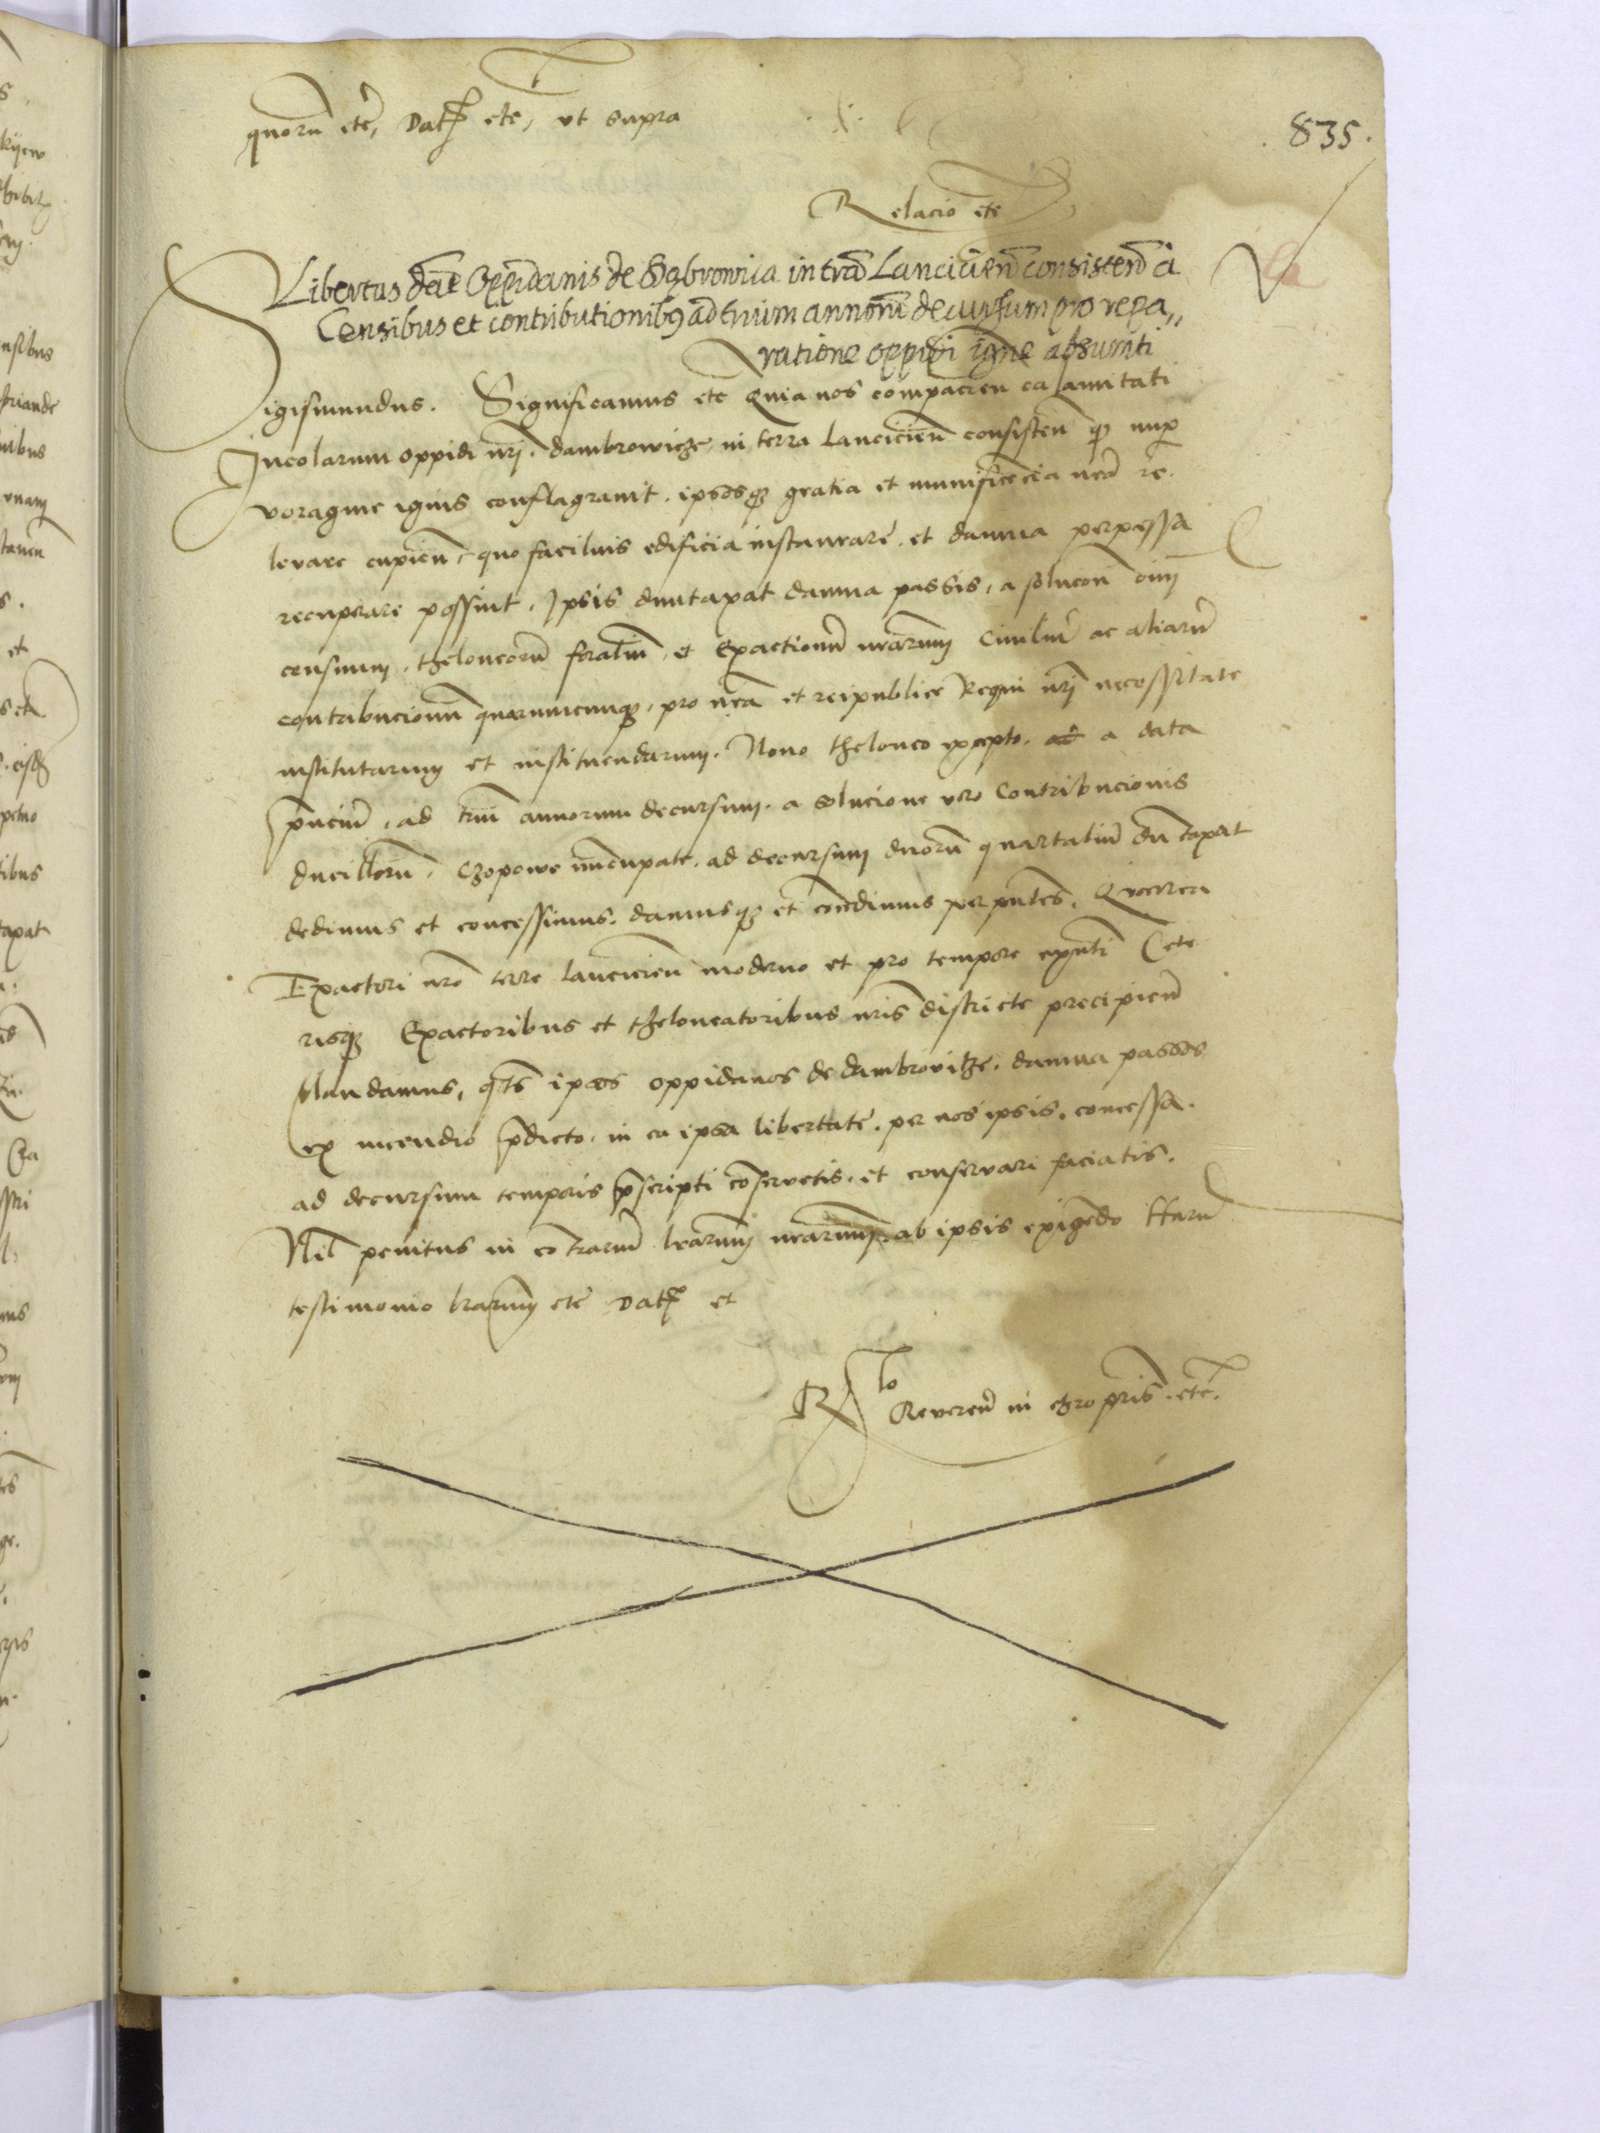 quorū etc̄, Dat̄ etc̄, ut supra
835.
Relacio etc̄
Libertas datē Oppidanis de Dąbrownia in trā Lancicień consisteñ a
Censibus et contributionibꝫ ad trium annorū decursum pro repa„
ratione oppidi igne absumti
Sigismundus. Significamus etc̄ Quia nos compacień calamitati
Incolarum oppidi nrī. dambrowicze in terra Lancicień consisteñ qꝫ nup̄
voragine ignis conflagravit. ipsosqꝫ gratia et munificēcia nrā re
levare cupień, quo facilius edificia instaurare, et damna perpessa
recuperare possint, Ipsis duntaxat damna passis, a solucōe oīm
censuum, theloneorū foraliū, et Exactionū nrārum Civiliū ac aliarū
contribucionū quarumcunqꝫ, pro nrā et reipublice Regni nrī necessitate
institutarum et instituendarum. Novo theloneo excepto. a data
pn̄ciū, ad triū annorum decursum. a solucione vero Contribucionis
ducillorū, Czopowe nūcupate. ad decursum duorū quartaliū dūtaxat
dedimus et concessimus. damusqꝫ et cōcedimus per pn̄tes. Quocirca
Exactori nrō terre lancicień moderno et pro tempore exn̄ti Cete
risqꝫ Exactoribus et theloneatoribus nrīs districte precipień
Mandamus, qt̄s ipsos oppidanos de dambrovicze. damna passos
ex incendio p̄dicto. in ea ipsa libertate. per nos ipsis. concessa.
ad decursum temporis p̄scripti cōservetis. et conservari faciatis.
Nil penitus in cōtrariū lrārum nrārum. ab ipsis exigēdo harū
testimonio lrārum etc̄ Dat̄ et
Rlo Reverēn in chro pr̄is. etc̄.